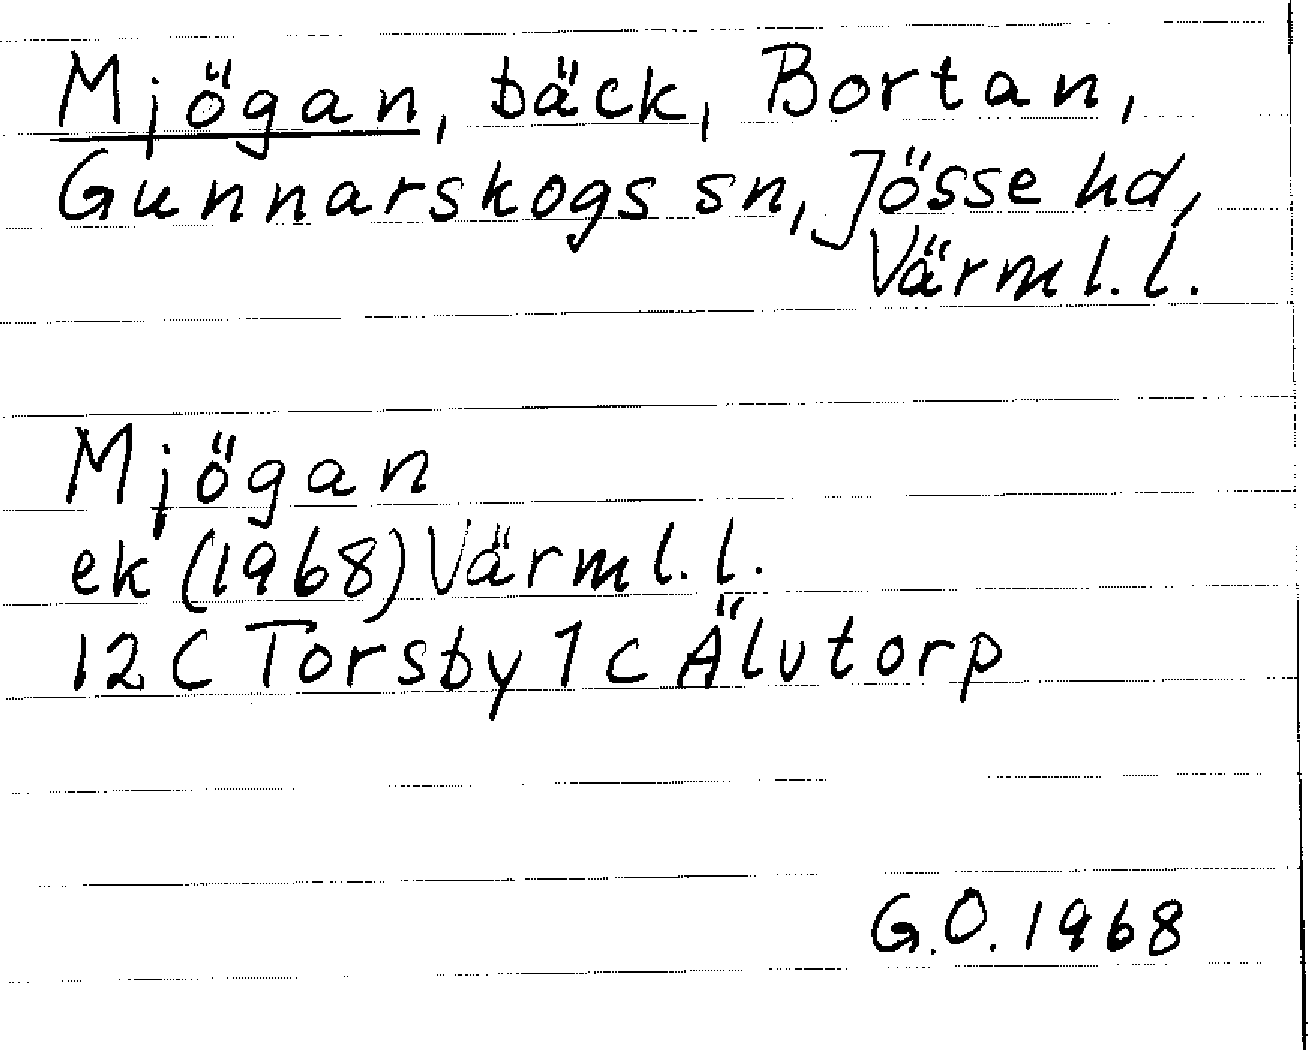 Mjögan, bäck, Bortan,
Gunnarskogs sn, Jösse hd,
Värml.l.
Mjögan
ek (1968) Värml.l.
12C Torsby 1c Älvtorp
G.O. 1968